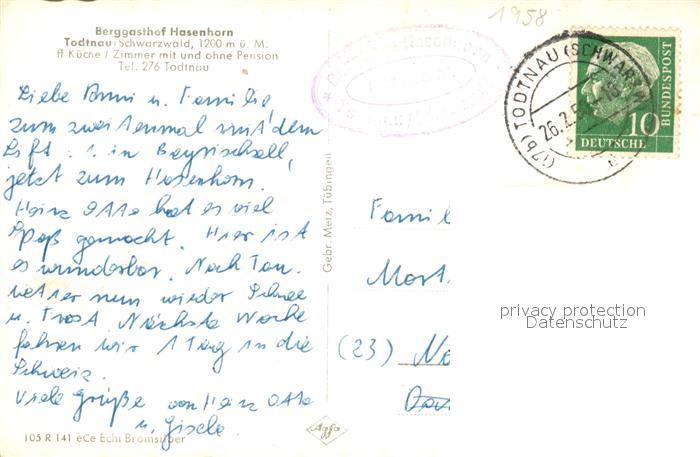 1958
Berggasthof Hasenhorn
Todtnau/Schwarzwald, 1200 m ü. M.
ff Küche / Zimmer mit und ohne Pension
Tel. 276 Todtnau
Liebe u. Familie,
zum zweitenmal mit dem
Lift. 1. in Bayrischzell,
jetzt zum Hasenhorn.
Heinz Otto hat es viel
Spaß gemacht. Hier ist
es wunderbar. Nach Tau-
wetter nun wieder Schnee
u. Frost. Nächste Woche
fahren wir 1 Tag in die
Schweiz.
Viele Grüße von Heinz Otto
u. Gisela.
105 R 141 eCe Echt Bromsilber
Agfa
Gebr. Metz, Tübingen
(17b) TODTNAU (SCHWARZW
26.2.5
10
DEUTSCHE
BUNDESPOST
Famil
(23)
privacy protection
Datenschutz